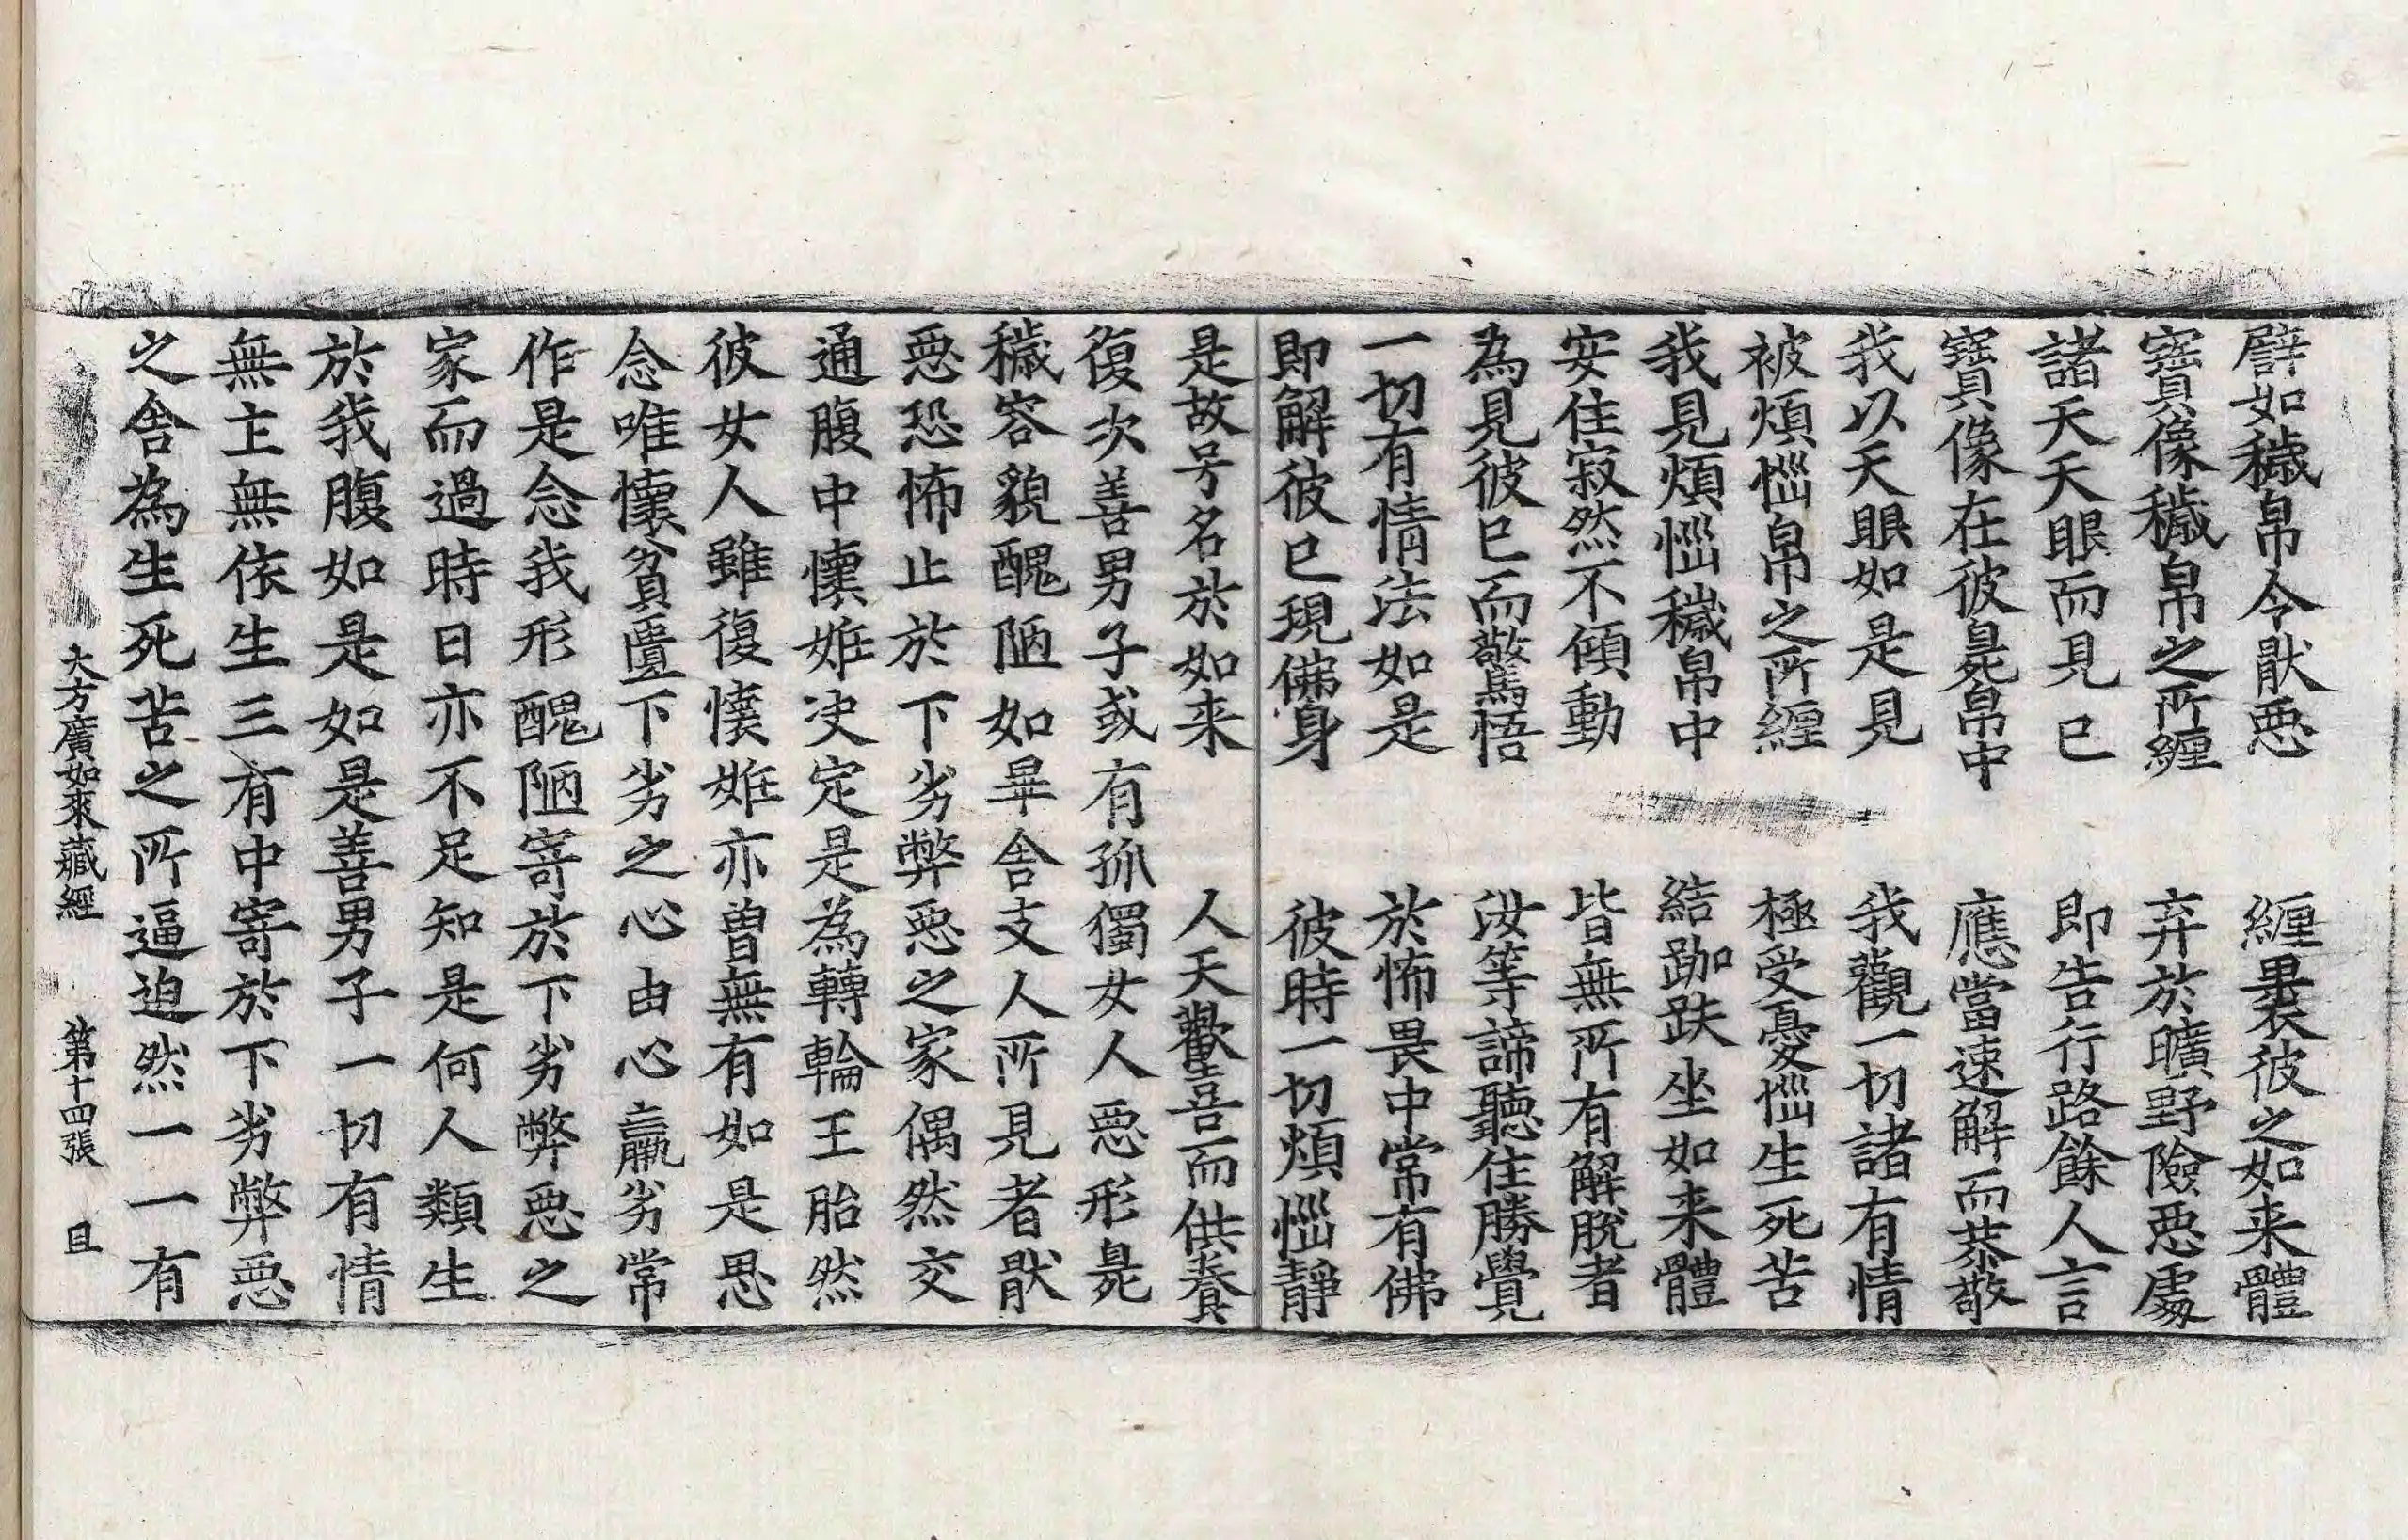 譬如穢帛令猒惡　纏裹彼之如来體
寶像穢帛之所纏　弃於曠野險惡處
諸天天眼而見已　即告行路餘人言
寶像在彼臰帛中　應當速解而恭敬
我以天眼如是見　我觀一切諸有情
被煩惱帛之所纏　極受憂惱生死苦
我見煩惱穢帛中　結跏趺坐如来體
安住寂然不傾動　皆無所有解脫者
為見彼已而驚悟　汝等諦聽住勝覺
一切有情法如是　於怖畏中常有佛
即解彼已現佛身　彼時一切煩惱靜
是故号名於如来　人天歡喜而供養
復次善男子或有孤獨女人惡形臰
穢容貌醜陋如畢舍支人所見者猒
惡恐怖止於下劣弊惡之家偶然交
通腹中懷妊决定是為轉輪王胎然
彼女人雖復懷妊亦曾無有如是思
念唯懷貧匱下劣之心由心羸劣常
作是念我形醜陋寄於下劣弊惡之
家而過時日亦不足知是何人類生
於我腹如是如是善男子一切有情
無主無依生三有中寄於下劣弊惡
之舍為生死苦之所逼迫然一一有
大方廣如來藏經　第十四張　且